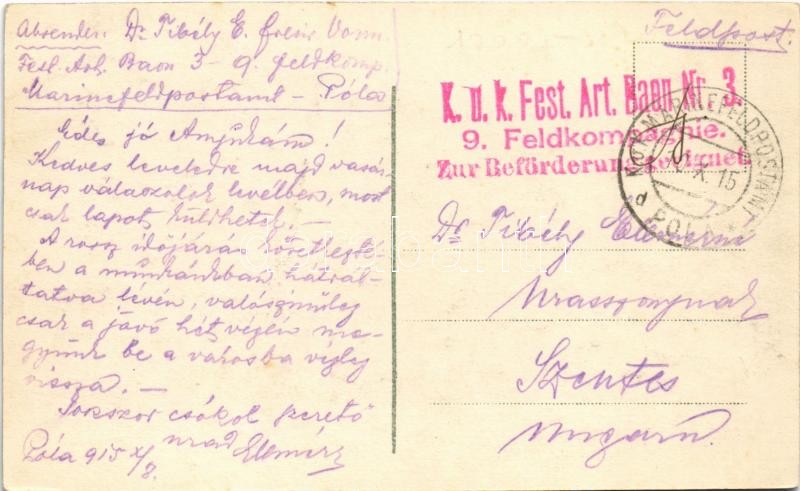 Absender: Dr Tibély E. freiw. Vorm.
Fest. Art. Baon 3 - 9. Feldkomp.
Marinefeldpostamt - Póla
Édes jó Anyukám!
Kedves leveledre majd vasár-
nap válaszolok levélben, most
csak lapot küldhetek. -
A rossz időjárás következté-
ben a munkánkban hátrál-
tatva lévén, valószínűleg
csak a jövő hét végén me-
gyünk be a városba végleg
vissza. -
Sokszor csókol szerető
urad Elemér
Póla 915 X/8.
Feldpost.
K. u. k. Fest. Art. Baon Nr. 3.
9. Feldkompagnie.
Zur Beförderung geeignet
K.u.K. MARINEFELDPOSTAMT
X. 15
d POLA
Dr. Tibély Elemérné
Urasszonynak
Szentes
Ungarn.